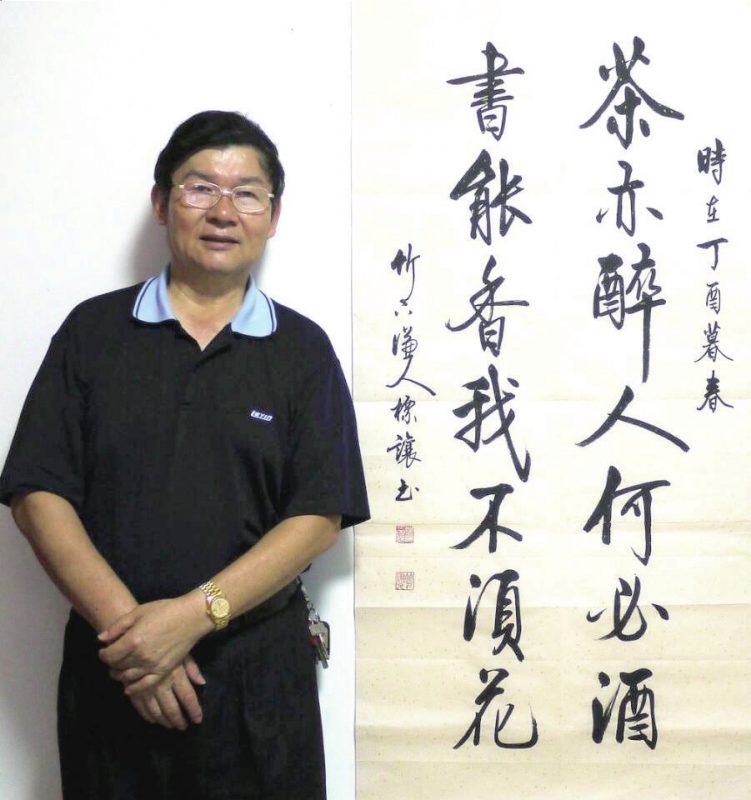 時在丁酉暮春
茶亦醉人何必酒
書能香我不湏花
竹謙人標讓书